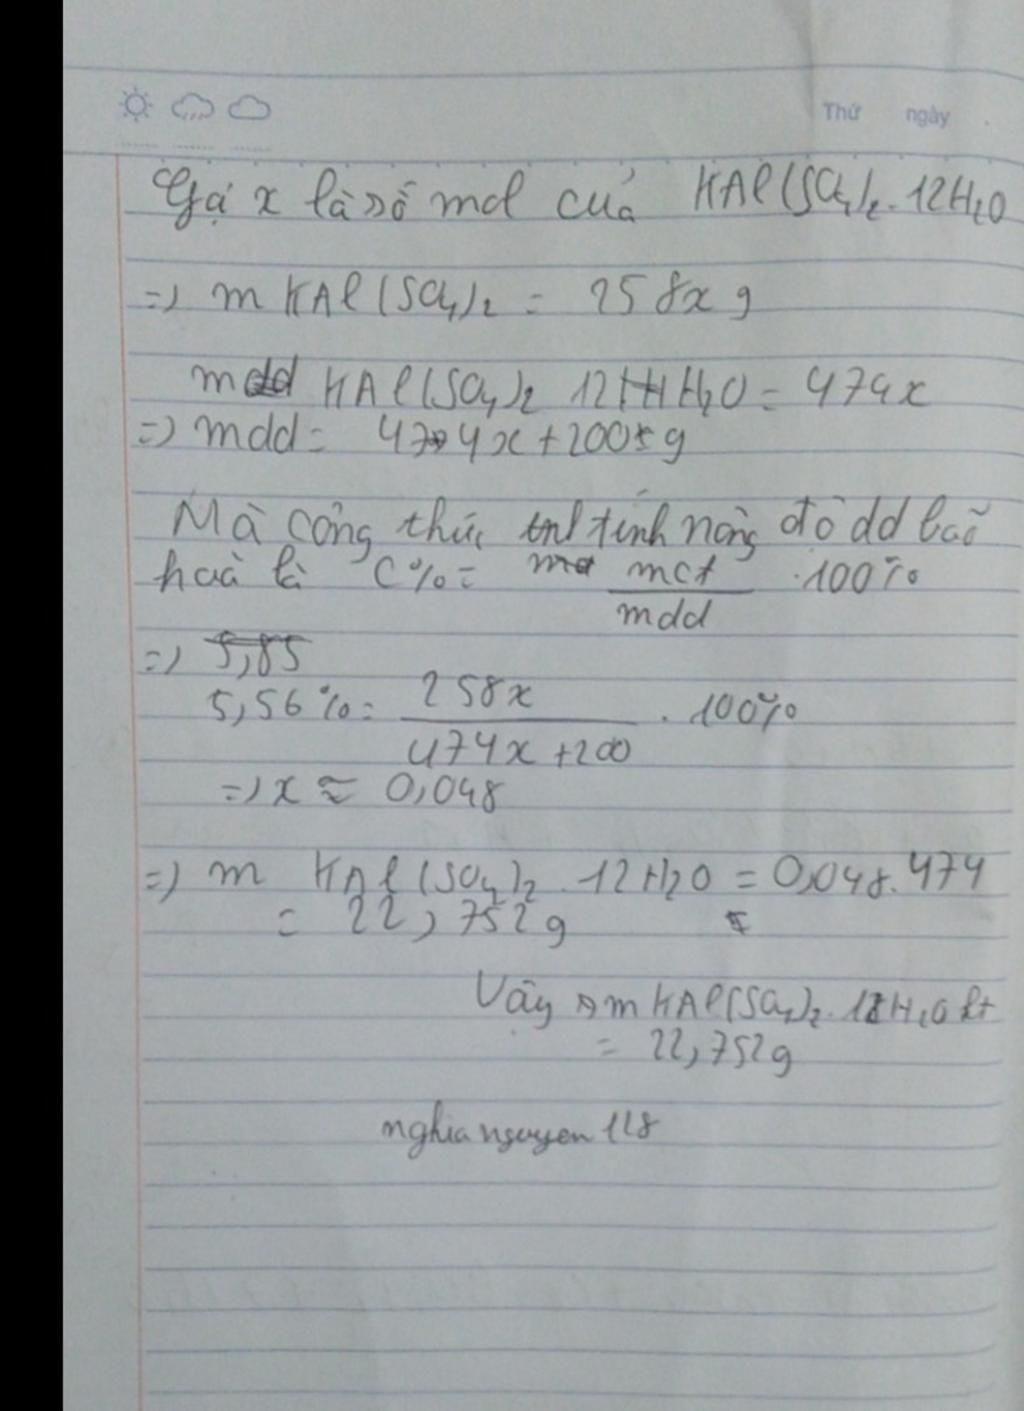 Thứ ngày
Gọi x là số mol của KAl(SO4)2.12H2O
=> m KAl(SO4)2 = 258x g
mdd KAl(SO4)2 12H2O = 474x
=> mdd = 474x+200 g
Mà công thức tính nồng độ dd bão
hoà là C% = mct/mdd .100%
=> 5,85
5,56% = 258x/474x+200 . 100%
=> x ≈ 0,048
=> m KAl(SO4)2.12H2O = 0,048.474
= 22,752g
Vậy m KAl(SO4)2.12H2O kt
= 22,752g
nghianguyen118